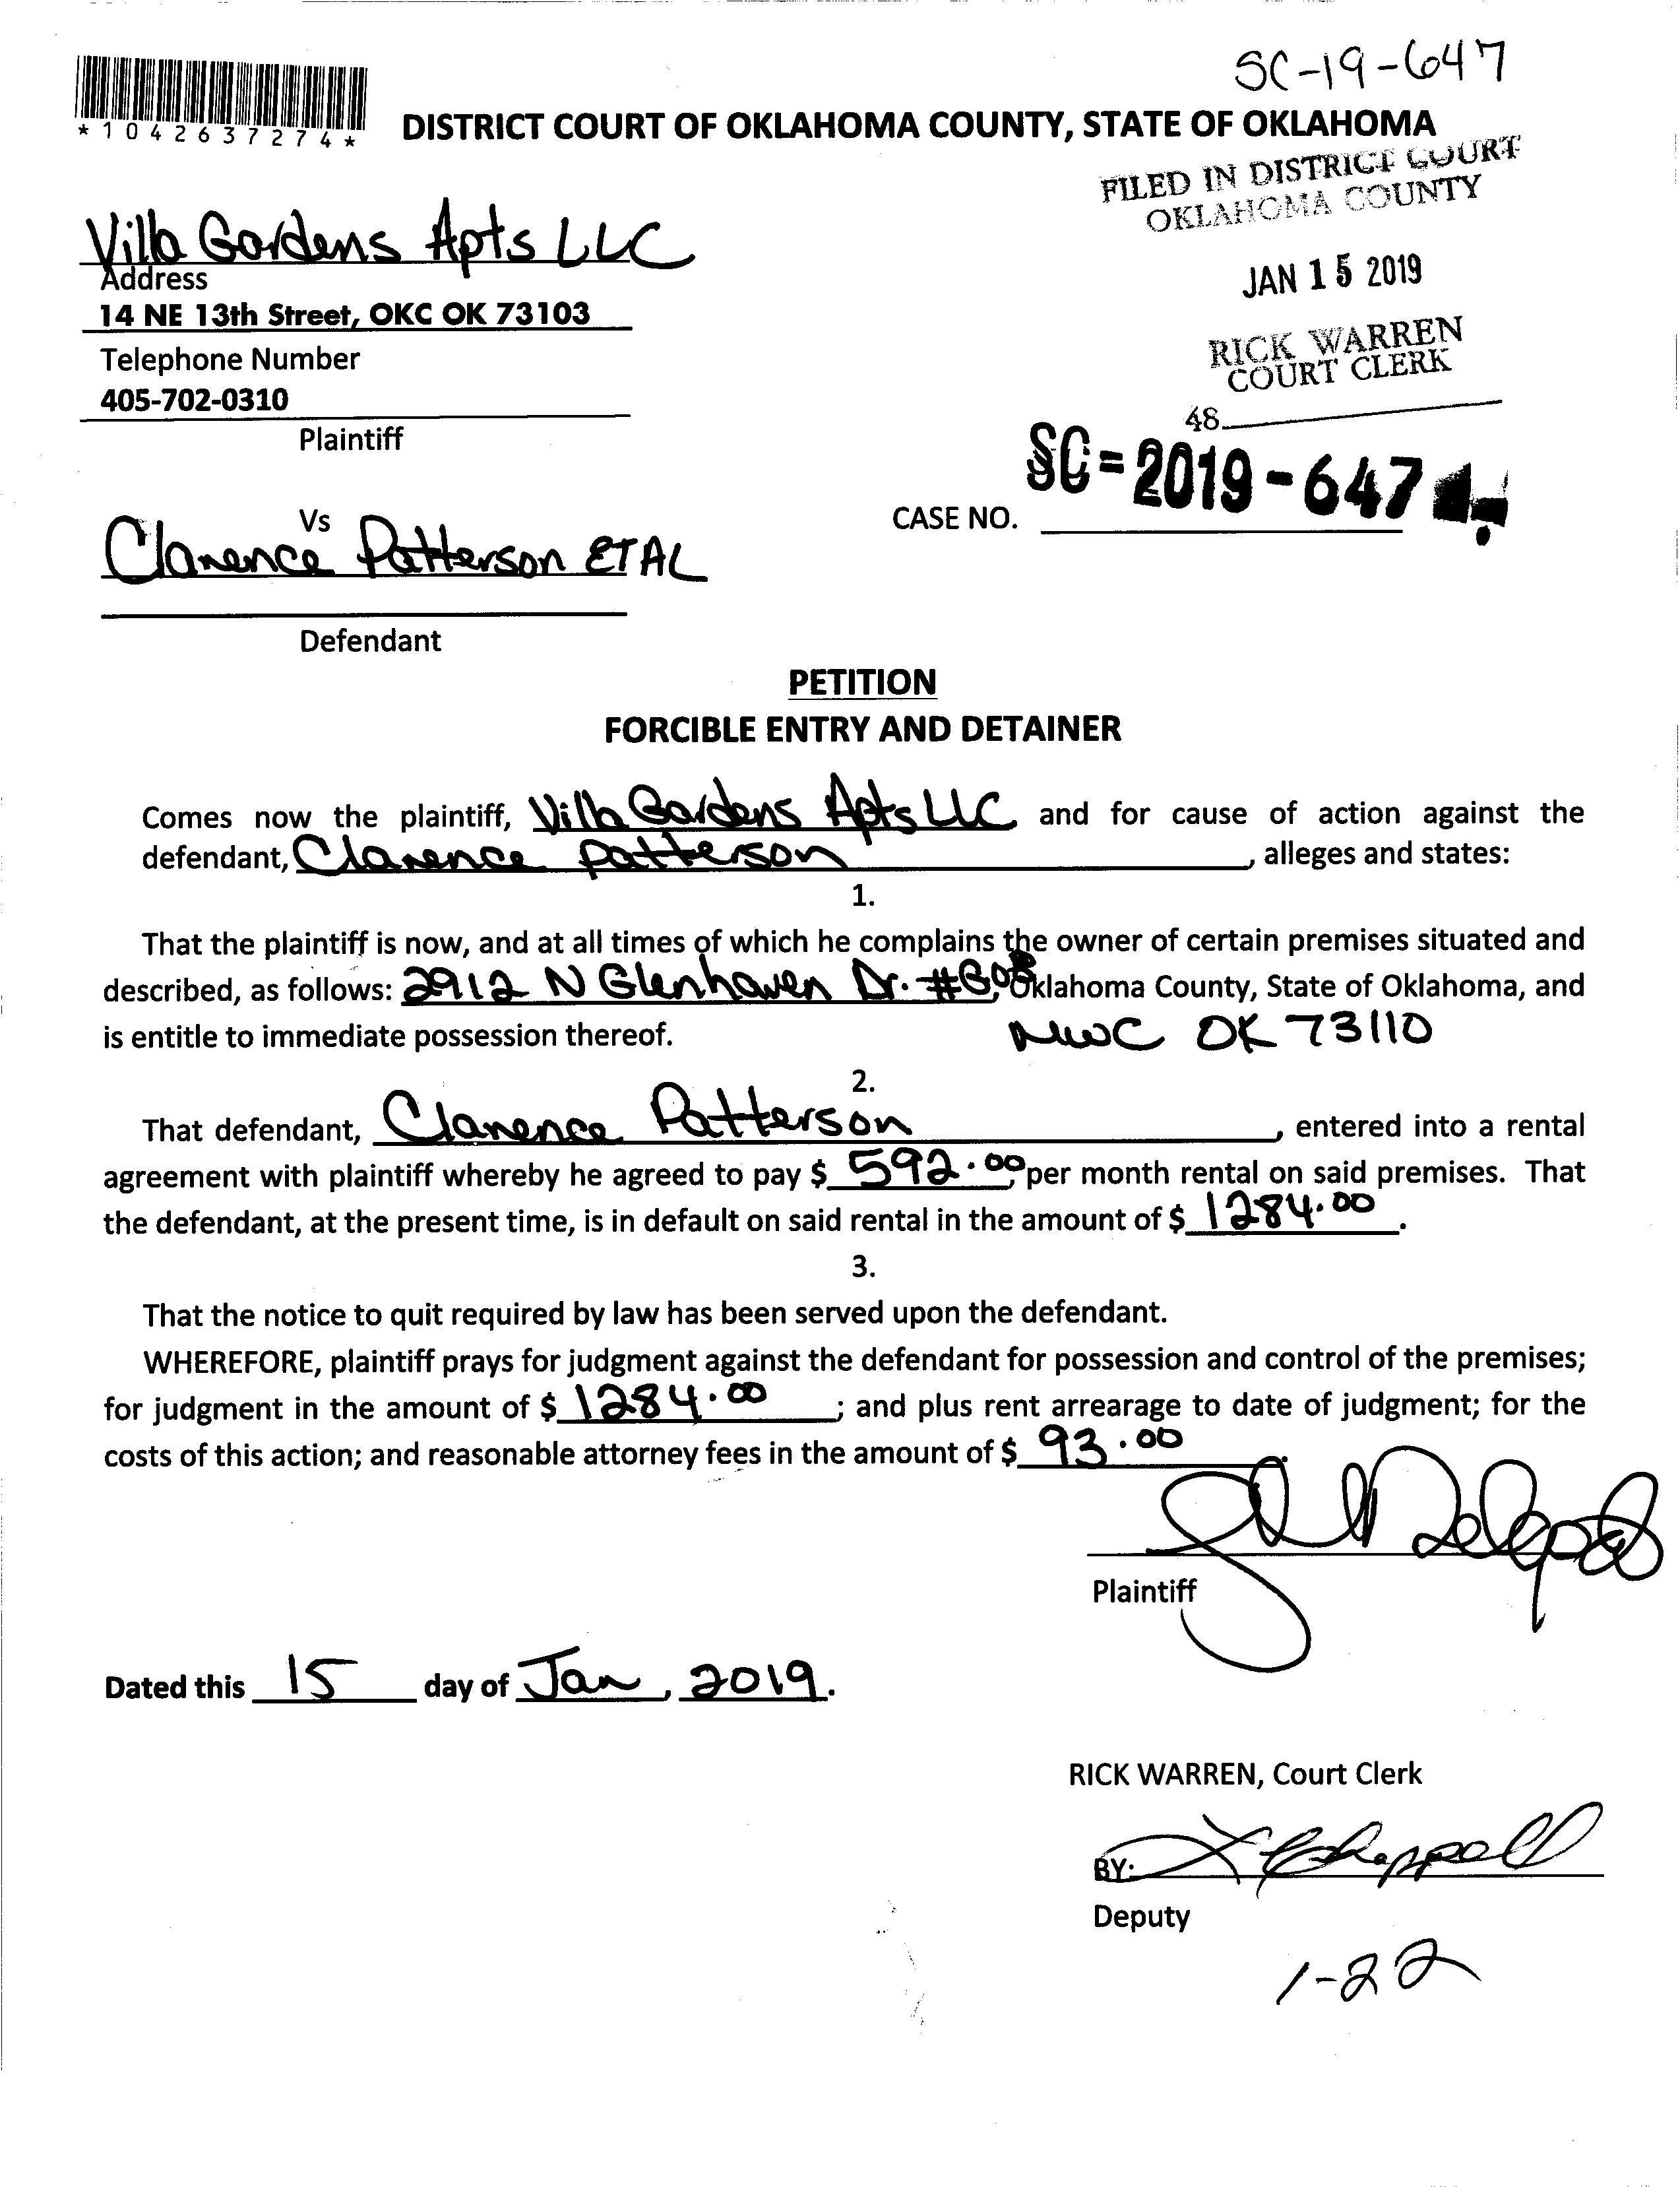 SC-19-647
*1042637274*
DISTRICT COURT OF OKLAHOMA COUNTY, STATE OF OKLAHOMA
FILED IN DISTRICT COURT
OKLAHOMA COUNTY
Villa Gardens Apts LLC
Address
JAN 15 2019
14 NE 13th Street, OKC OK 73103
Telephone Number
RICK WARREN
COURT CLERK
405-702-0310
48
Plaintiff
SC-2019-647
CASE NO.
Vs
Clarence Patterson ETAL
Defendant
PETITION
FORCIBLE ENTRY AND DETAINER
Comes now the plaintiff, Villa Gardens Apts LLC and for cause of action against the
defendant, Clarence Patterson, alleges and states:
1.
That the plaintiff is now, and at all times of which he complains the owner of certain premises situated and
described, as follows: 2912 N Glenhaven Dr. Oklahoma County, State of Oklahoma, and
is entitle to immediate possession thereof. MWC OK 73110
2.
That defendant, Clarence Patterson, entered into a rental
agreement with plaintiff whereby he agreed to pay $ 592.00, per month rental on said premises. That
the defendant, at the present time, is in default on said rental in the amount of $ 1284.00.
3.
That the notice to quit required by law has been served upon the defendant.
WHEREFORE, plaintiff prays for judgment against the defendant for possession and control of the premises;
for judgment in the amount of $ 1284.00; and plus rent arrearage to date of judgment; for the
costs of this action; and reasonable attorney fees in the amount of $ 93.00
Plaintiff
Dated this 15 day of Jan, 2019.
RICK WARREN, Court Clerk
BY:
Deputy
1-22